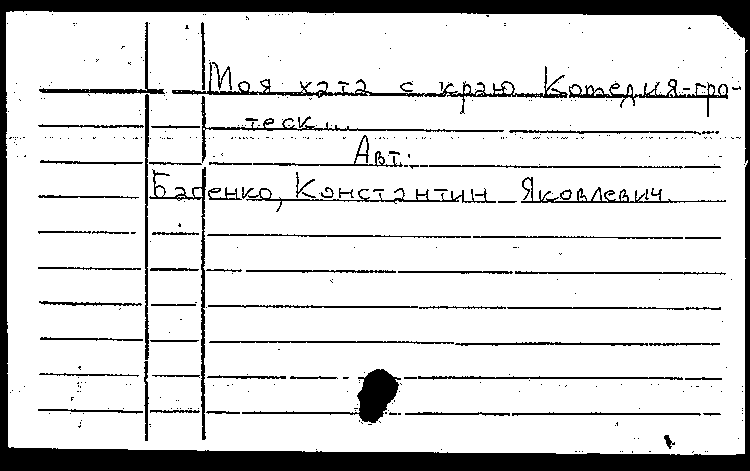 Моя хата с краю Комедия-гро-
теск...
Авт.:
Басенко, Константин Яковлевич.